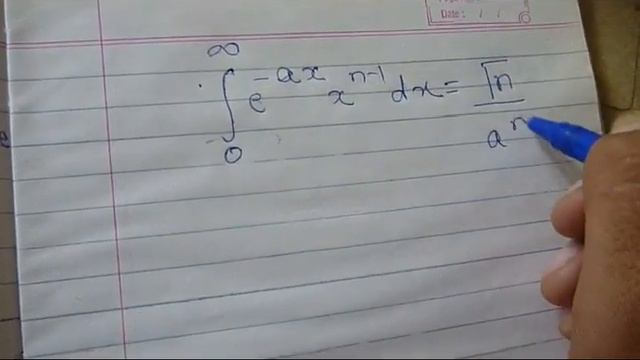 Date: / /
∫₀^∞ e^{-ax} x^{n-1} dx = Γn / a^n